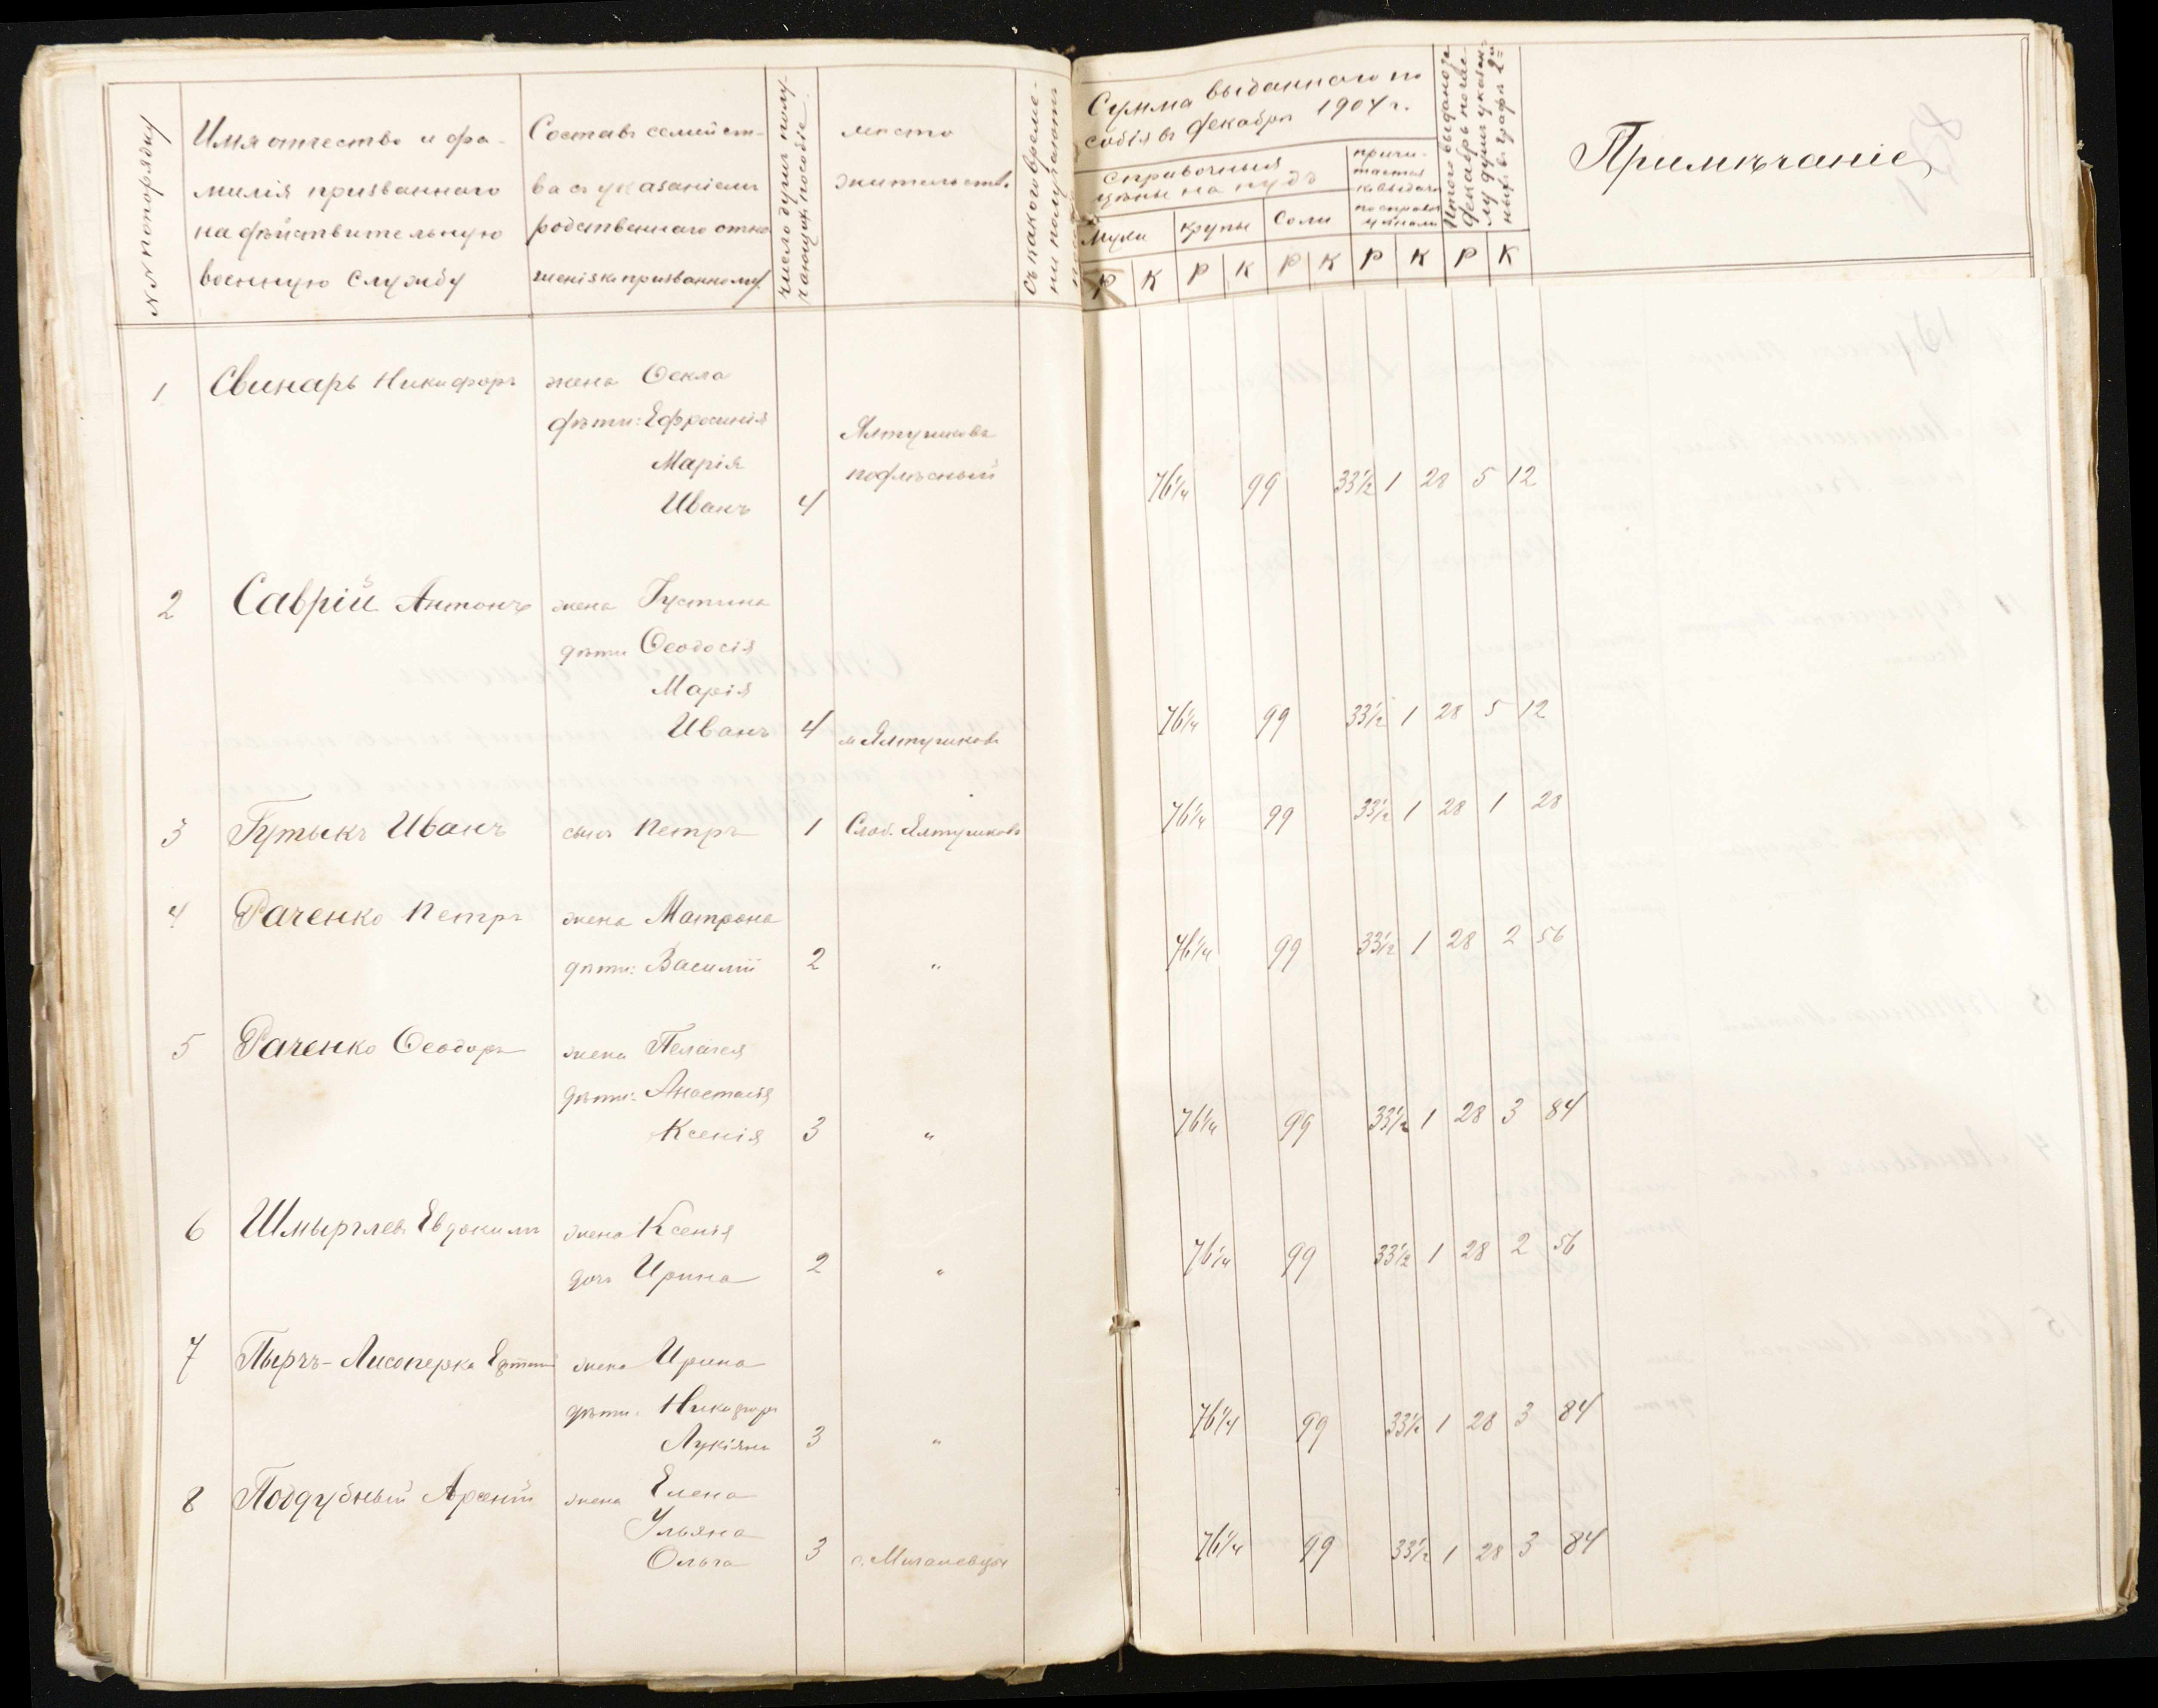 №№ по порядку
Имя отчество и фа-
милія призваннаго
на дѣйствительную
военную службу
Составъ семейст-
ва съ указаніемъ
родственнаго отно
шенія къ призванному
число душъ полу-
чающихъ пособіе.
место
жительства
Съ какого време-
ни получаютъ
Сумма выданнаго по
собія въ декабрѣ 1904 г.
справочныя
цѣны на пудъ
причи-
тается
къ выдачѣ
по справоч
цѣнамъ
Муки
крупы
Соли
Итого выдано за
декабрь
Р К Р К Р К Р К Р К
Примѣчаніе
1 Свинарь Никифоръ жена Ѳекла
дѣти: Ефросинія
Ялтушковъ
Марія
подлѣсный
Иванъ 4 76¼ 99 33½ 1 28 5 12
2 Саврій Антонъ жена Іустина
дѣти Ѳеодосія
Марія
Иванъ 4 м Ялтушковъ 76¼ 99 33½ 1 28 5 12
3 Гутыкъ Иванъ сынъ Петръ 1 Слоб. Ялтушковъ 76¼ 99 33½ 1 28 1 28
4 Раченко Петръ жена Матрона
дѣти: Василій 2 " 76¼ 99 33½ 1 28 2 56
5 Раченко Ѳеодоръ жена Пелагея
дѣти: Анастасія
Ксенія 3 " 76¼ 99 33½ 1 28 3 84
6 Шмырглевъ Евдокимъ жена Ксенія
дочь Ирина 2 " 76¼ 99 33½ 1 28 2 56
7 Пыргъ-Лисоперка жена Ирина
дѣти: Никифоръ
Лукіянъ 3 " 76¼ 99 33½ 1 28 3 84
8 Поддубный Арсеній жена Елена
Ульяна
Ольга 3 с. Мигалевцы 76¼ 99 33½ 1 28 3 84